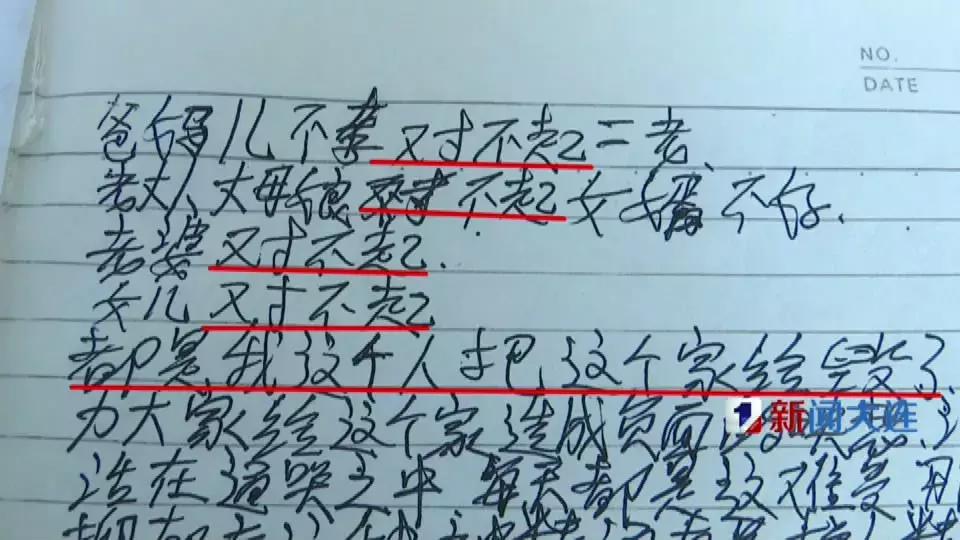 NO.
DATE
爸妈儿不孝对不起二老.
老丈人丈母娘对不起女婿不好.
老婆对不起.
女儿对不起
都是我这个人把这个家给毁了
为大家给这个家造成负面的
新闻大连
活在痛哭之中每天都是这难受用